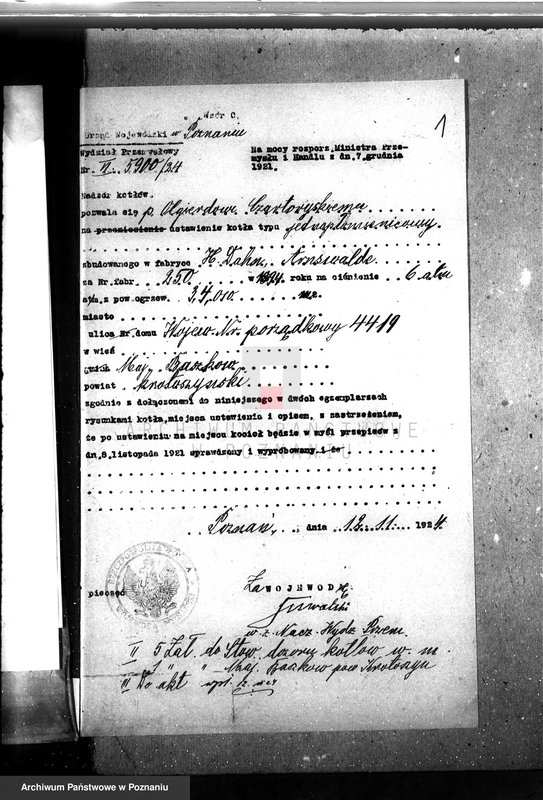 Wzór C.
1
Urząd Wojewódzki w Poznaniu
Wydział Przemysłowy
Nr. VI. 5900/24
Na mocy rozporz. Ministra Prze-
mysłu i Handlu z dn. 7. grudnia
1921.
Nadzór kotłów.
pozwala się p. Olgierdowi Czartoryskiemu
na przeniesienie ustawienie kotła typu jednopłomienicowy.
zbudowanego w fabryce H. Dahm, Arnswalde
za Nr. fabr. 250 w 1894 roku na ciśnienie 6 atm
atm. z pow. ogrzew. 24,00 m2.
miasto
ulica Nr. domu Wojew. Nr. porządkowy 4419
w wieś
gmina Maj. Baszków
powiat krotoszyński
zgodnie z dołączonem do niniejszego w dwóch egzemplarzach
rysunkami kotła, miejsca ustawienia i opisem, z zastrzeżeniem,
że po ustawieniu na miejscu kocioł będzie w myśl przepisów z
dn. 8. listopada 1921 sprawdzony i wypróbowany, i że
Poznań, dnia 12. 11. 1924
pieczęć
Za WOJEWODĘ
w z. Nacz. Wydz. Przem.
II 5 Zał. do Stow. dozoru kotłów w. m.
1 " " Maj. Baszków pow Krotoszyn
III Do akt
ARCHIWUM PAŃSTWOWE
W POZNANIU
Archiwum Państwowe w Poznaniu